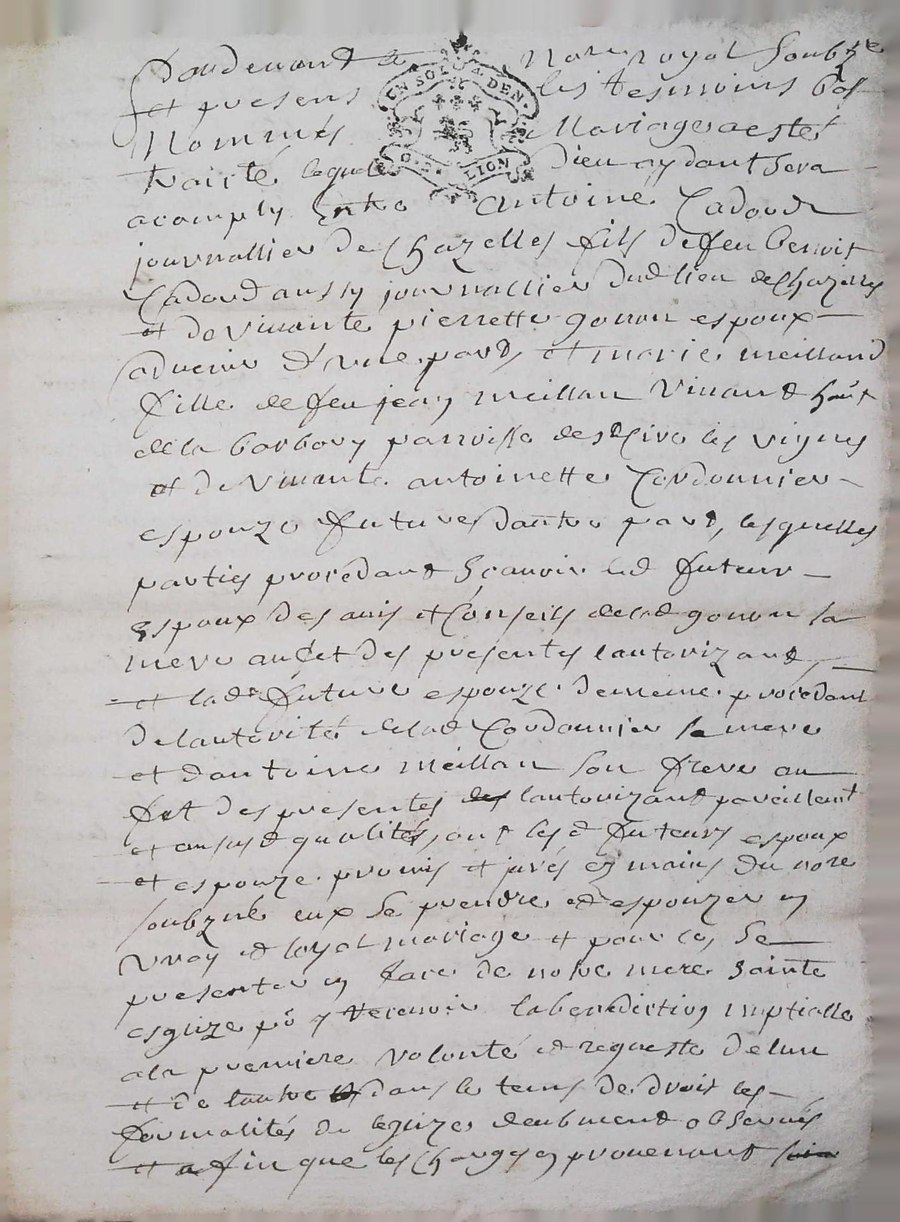 Pardevant le Nore royal soubzne
et presens les tesmoins bas
Nommés Mariage a este
traitté lequel Dieu aydant sera
acomply entre Antoine Cadoud
journallier de Chazelles fils de feu benoit
Cadoud aussy journallier dud lieu de Chazelles
et de vivante pierrette gonon espoux
advenir d'une part, et marie meilland
fille de feu jean meillan vivant
de la parroisse de st Cire les vignes
et de vivante antoinette Cordonnier
espouze future dautre part, lesquelles
parties procedant sçavoir led futeur
espoux des avis et Conseils de lad gonon sa
mere au fet des presentes lautorizant
et lade future espouze dememe procedant
de lautorité de lad Cordonnier sa mere
et dantoine meillan son frere au
fet des presentes lautorizant pareillemt
et aususd qualités, ont lesd futeurs espoux
et espouze promis et jurés es mains du nore
soubzné eux se prendre et espouzer en
vray et loyal mariage et pour ce, se
presenter en face de notre mere sainte
esglize pr y recevoir la benediction nuptialle
a la premiere volonté et requeste de lun
et de lautre dans le tems de droit les
formalités de leglize deubment observés
et afin que les Charges en provenant
EN SOLZ 4 DEN.
G. D. LION